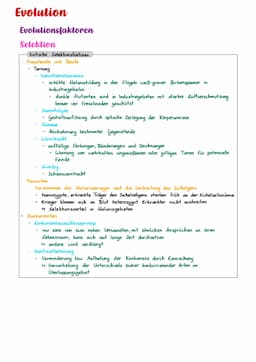 Evolution
Evolutionsfaktoren
Selektion
biotische Selektionsfaktoren
Fressfeinde und Beute
Tarnung
Industriemelanismus
erhöhte Melaninbildung in den Flügeln weiß-grauer Birkenspanner in
Industriegebieten
dunkle Mutanten sind in Industriegebieten mit starker Luftverschmutzung
besser vor Fressfeinden geschützt
Somatolyse
Gestaltsauflösung durch optische Zerlegung der Körperumrisse
Mimese
Nachahmung bestimmter Gegenstände
Warntracht
auffällige Färbungen, Bänderungen und Zeichnungen
Warnung vor wehrhaften, ungenießbaren oder giftigen Tieren für potenzielle
Feinde
Mimikry
Scheinwarntracht
Parasiten
Vorkommen der Malariaerreger und die Verbreitung des Sichelgens
homozygote, erkrankte Träger des Sichelzellgens sterben früh an der Sichelzellanämie
Erreger können sich im Blut heterozygot Erkrankter nicht ausbreiten
→ Selektionsvorteil in Malariagebieten
Konkurrenten
Konkurrenzausschlussprinzip
nur eine von zwei nahen Verwandten, mit ähnlichen Ansprüchen an ihren
Lebensraum, kann sich auf lange Zeit durchsetzen
→ andere wird verdrängt
Kontrastbetonung
Verminderung bzw. Aufhebung der Konkurrenz durch Einnischung
→ Verstärkung der Unterschiede zweier konkurrierender Arten im
Überlappungsgebiet